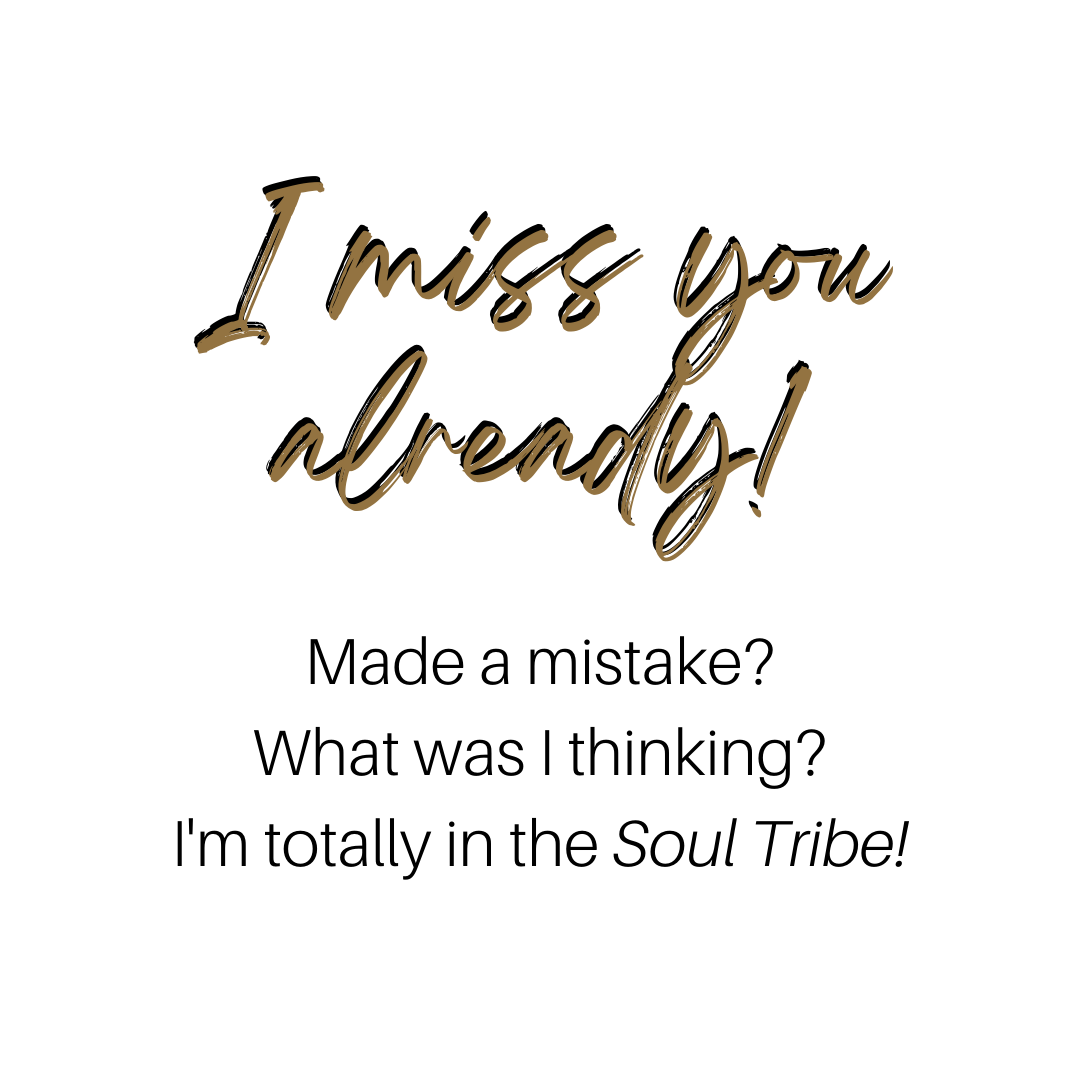 I miss you
already!
Made a mistake?
What was I thinking?
I'm totally in the Soul Tribe!